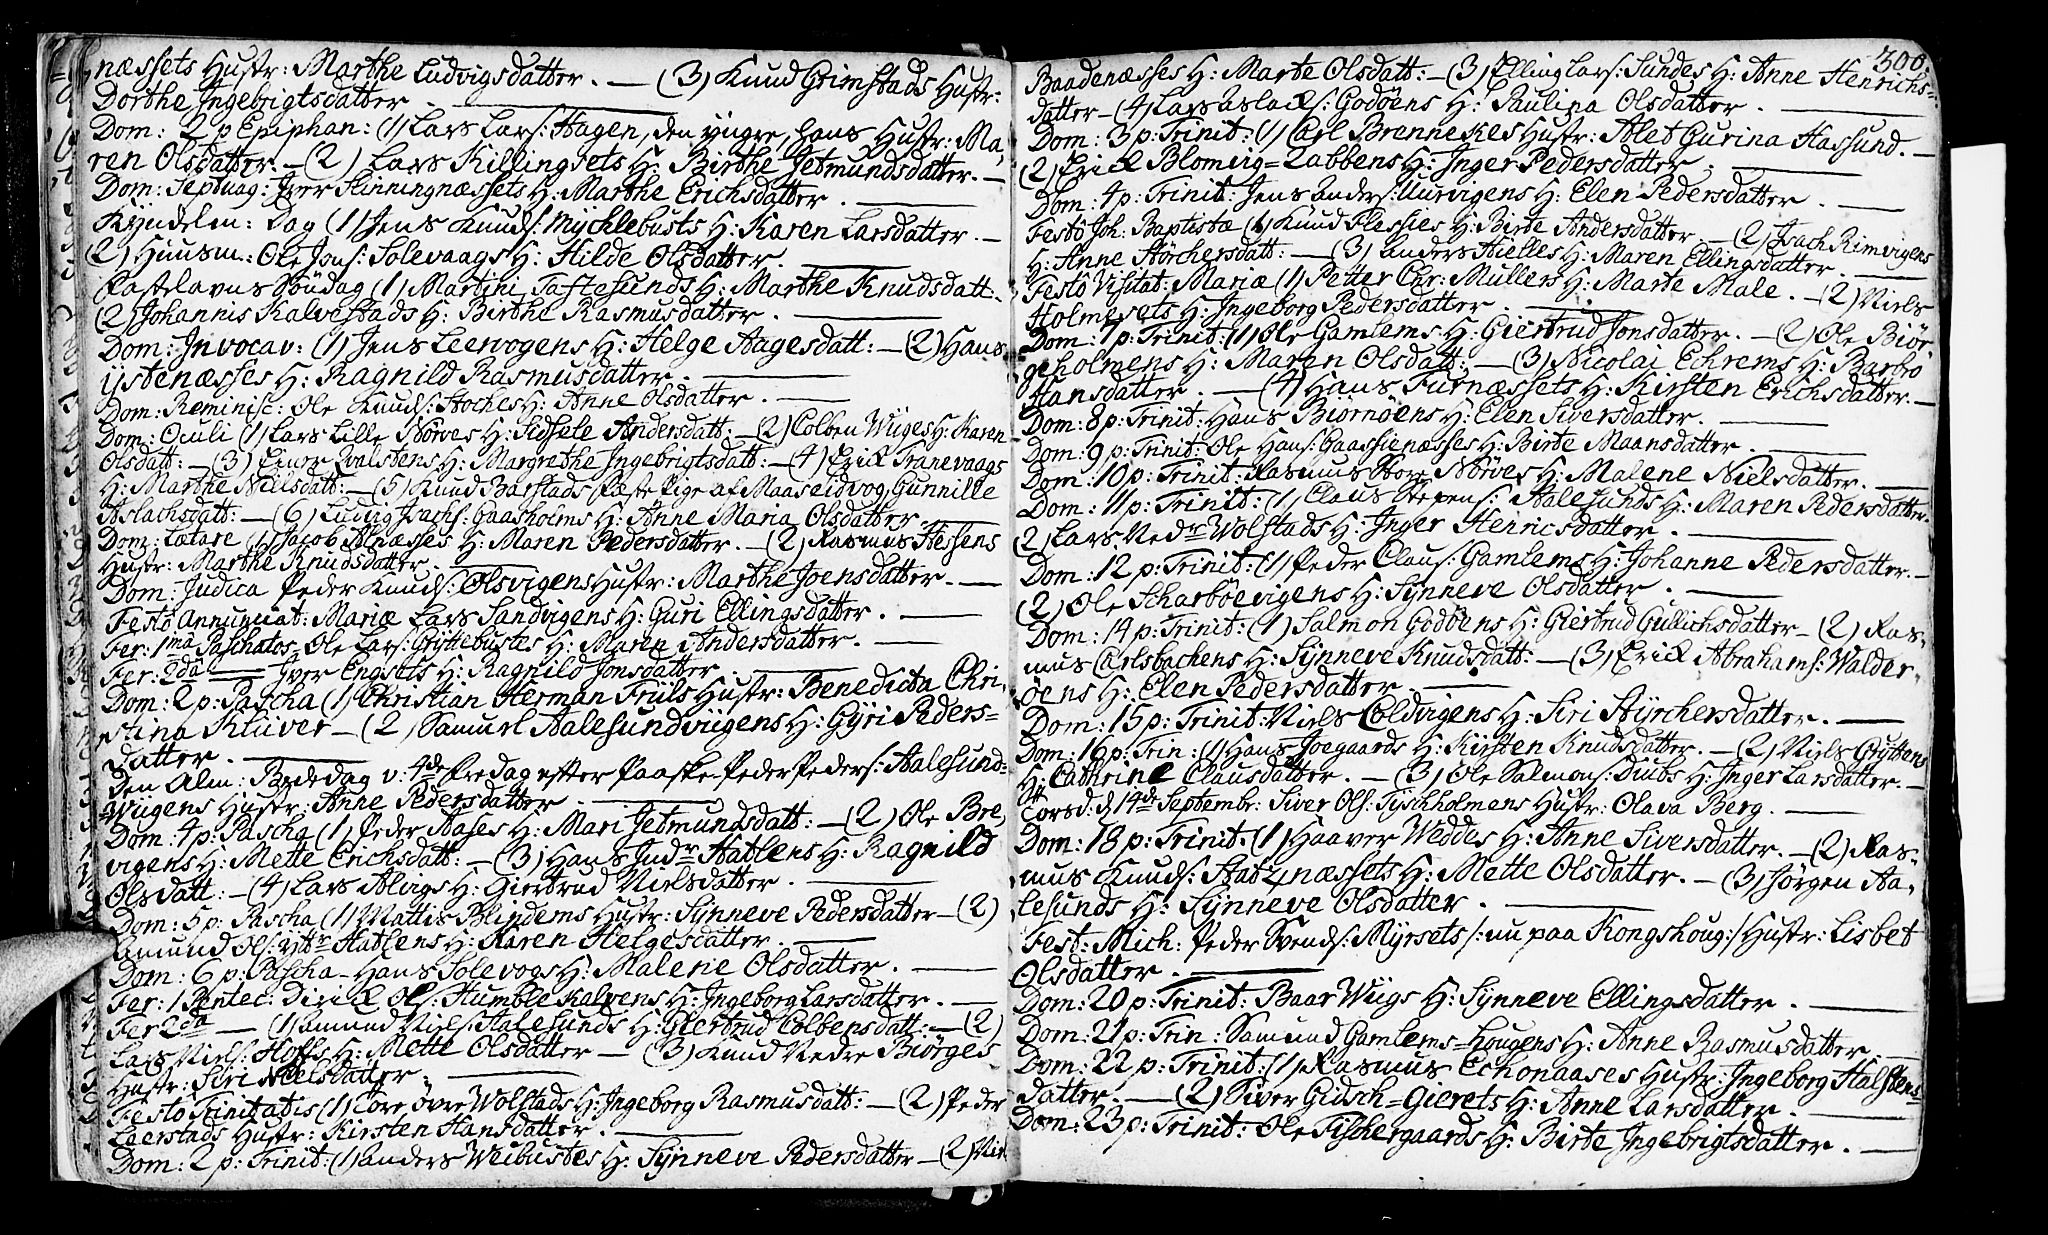 næssets Hustr: Marthe Ludvigsdatter. — (3) Knud Grimstads Hustr:
Dorthe Ingebrigtsdatter.
Dom: 2 p Epiphan: (1) Lars Lars: Hagen, den yngre, hans Hustr: Ma-
ren Olsdatter. — (2) Lars Killingsets H: Birthe Jetmundsdatter. —
Dom: Septuag: Iver Slinningnæssets H: Marthe Erichsdatter. —
Kyndelm: Dag (1) Jens Knuds: Mychlebusts H: Karen Larsdatter. —
(2) Huusm: Ole Jons: Solevaags H: Hilde Olsdatter. —
Fastelavns Söndag (1) Martini Fastesunds H: Marthe Knudsdatt: —
(2) Johannis Kalvestads H: Birthe Rasmusdatter. —
Dom: Invocav: (1) Jens Leervogens H: Helge Aagesdatt: — (2) Hans
ystenæsses H: Ragnild Rasmusdatter. —
Dom: Reminisc: Ole Knuds: Hoches H: Anne Olsdatter. —
Dom: Oculi (1) Lars Lille Nörves H: Sidsele Andersdatt: — (2) Colben Wiiges H: Karen
Olsdatt: — (3) Einer Qvalstens H: Margrethe Ingebrigtsdatt: — (4) Erick Tranevaags
H: Marthe Nielsdatt: — (5) Knud Barstads Fæste Pige af Maaseidvog Gunnille
Aslachsdatt: — (6) Ludvig Isachs: Gaasholms H: Anne Maria Olsdatter.
Dom: Lætare (1) Jacob Alnæsses H: Maren Pedersdatter. — (2) Rasmus Hessens
Hustr: Marthe Knudsdatter.
Dom: Judica Peder Knuds: Olsvigens Hustr: Marthe Joensdatter. —
Festo Annunciat: Mariæ Lars Sandvigens H: Guri Ellingsdatter. —
Fer: 1ma Paschatos Ole Lars: Gryttebustes H: Maren Andersdatter. —
Fer: 2da — Iver Engsets H: Ragnild Jonsdatter. —
Dom: 2 p: Pascha (1) Christian Herman Friils Hustr: Benedicta Chri-
stina Klüver — (2) Samuel Aalesundviigens H: Gyri Peders=
datter. —
Den Alm: Bededag v: 4de Fredag efter Paaske Peder Peders: Aalesund=
Wiigens Hustr: Anne Pedersdatter. —
Dom: 4 p: Pascha (1) Peder Aases H: Mari Jetmundsdatt: — (2) Ole Bre
vigens H: Mette Erichsdatt: — (3) Hans Indr Hatlens H: Ragnild
Olsdatt: — (4) Lars Alvigs H: Giertrud Nielsdatter. —
Dom: 5 p: Pascha (1) Mattis Blindems Hustr: Synneve Pedersdatter — (2)
Amund Ols: Yttr Hatlens H: Karen Helgesdatter. —
Dom: 6 p: Pascha — Hans Solevogs H: Malene Olsdatter. —
Fer: 1 Pentec: Dirick Ols: Humblekalvens H: Ingeborg Larsdatter. —
Fer 2da — (1) Amund Niels: Aalesunds H: Giertrud Colbensdatt: — (2)
Lars Niels: Hoffs H: Mette Olsdatter — (3) Knud Nedre Biörges
Hustr: Siri Nielsdatter. —
Festo Trinitatis (1) Tore övre Wolstads H: Ingeborg Rasmusdatt: — (2) Peder
Leerstads Hustr: Kirsten Hansdatter. —
Dom: 2 p: Trinit: (1) Anders Weibustes H: Synneve Pedersdatter — (2) Niel
300.
Baadenæsses H: Marte Olsdatt: — (3) Elling Lars: Sundes H: Anne Henrichs=
datter — (4) Lars Aslacks: Godöens H: Paulina Olsdatter. —
Dom: 3 p: Trinit: (1) Carl Brennekes Hustr: Alet Gurina Hassund. —
(2) Erick Blomvig=Labbens H: Inger Pedersdatter. —
Dom: 4 p: Trinit: Jens Anders: Uurvigens H: Elen Pedersdatter. —
Festo Joh: Baptistæ (1) Knud Flessies H: Birte Andersdatter — (2) Isach Rimvigens
H: Anne Störchersdatt: — (3) Anders Hielles H: Maren Ellingsdatter. —
Festo Visitat: Mariæ (1) Petter Chr: Müllers H: Marte Male. — (2) Niels
Holmesets H: Ingeborg Pedersdatter. —
Dom: 7 p: Trinit: (1) Ole Gamlems H: Giertrud Jonsdatter. — (2) Ole Biör-
geholmens H: Maren Olsdatt: — (3) Nicolai Echrems H: Barbro
Hansdatter. — (4) Hans Furnæssets H: Kirsten Erichsdatter. —
Dom: 8 p: Trinit: Hans Biörnöens H: Elen Siversdatter. —
Dom: 9 p: Trinit: Ole Hans: Gaassienæsses H: Birte Maansdatter. —
Dom: 10 p: Trinit: Rasmus Store Nörves H: Malene Nielsdatter. —
Dom: 11 p: Trinit: (1) Claus Stepens: Aalesunds H: Maren Pedersdatter.
(2) Lars Nedr Wolstads H: Inger Henricsdatter. —
Dom: 12 p: Trinit: (1) Peder Claus: Gamlems H: Johanne Pedersdatter. —
(2) Ole Scharböevigens H: Synneve Olsdatter. —
Dom: 14 p: Trinit: (1) Salmon Godöens H: Giertrud Gulichsdatter — (2) Ras-
mus Carlsbachens H: Synneve Knudsdatt: — (3) Erick Abrahams: Walder-
öens H: Elen Pedersdatter. —
Dom: 15 p: Trinit: Niels Coldvigens H: Siri Styrchersdatter. —
Dom: 16 p: Trin: (1) Hans Joegaards H: Kirsten Knudsdatter. — (2) Niels Gryttens
H: Cathrine Clausdatter. — (3) Ole Salmons: Diubs H: Inger Larsdatter. —
Torsd: d: 14de Septembr: Siver Ols: Tyschholmens Hustr: Olava Berg. —
Dom: 18 p: Trinit: (1) Haaver Weddes H: Anne Siversdatter. — (2) Ras-
mus Knuds: Stadznæssets H: Mette Olsdatter. — (3) Jörgen Aa-
lesunds H: Synneve Olsdatter. —
Fest: Mich: Peder Svends: Myrsets /: nu paa Kongshoug :/ Hustr: Lisbet
Olsdatter. —
Dom: 20 p: Trinit: Baar Wiigs H: Synneve Ellingsdatter. —
Dom: 21 p: Trin: Samund Gamlems=hougens H: Anne Rasmusdatter. —
Dom: 22 p: Trinit: (1) Rasmus Echonaases Hustr: Ingeborg Halstens=
datter. — (2) Siver Gidsch=Gierets H: Anne Larsdatter. —
Dom: 23 p: Trinit: Ole Fischergaards H: Birte Ingebrigtsdatter. —